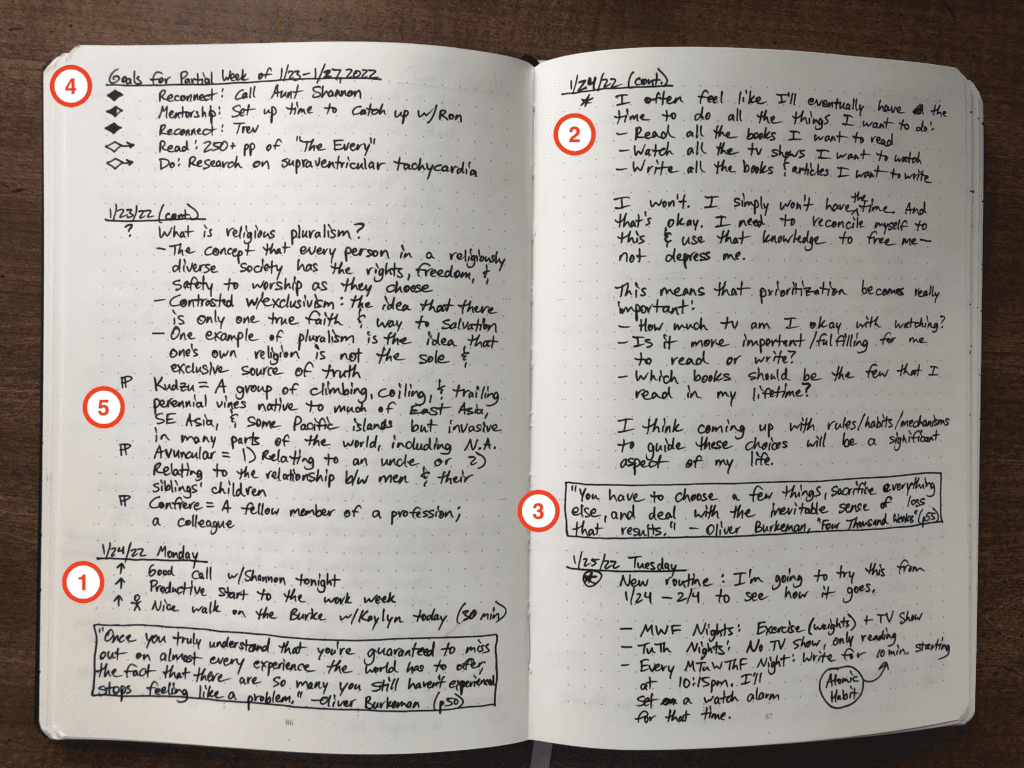 4
Goals for Partial Week of 1/23-1/27, 2022
Reconnect: Call Aunt Shannon
Mentorship: Set up time to catch up w/Ron
Reconnect: Trev
Read: 250+ pp of "The Every"
Do: Research on supraventricular tachycardia
1/23/22 (cont.)
? What is religious pluralism?
- The concept that every person in a religiously
diverse society has the rights, freedom, &
safety to worship as they choose
- Contrasted w/exclusivism: the idea that there
is only one true faith & way to salvation
- One example of pluralism is the idea that
one's own religion is not the sole &
exclusive source of truth
5
Kudzu = A group of climbing, coiling, & trailing
perennial vines native to much of East Asia,
SE Asia, & some Pacific islands but invasive
in many parts of the world, including N.A.
Avuncular = 1) Relating to an uncle or 2)
Relating to the relationship b/w men & their
siblings' children
Confrere = A fellow member of a profession;
a colleague
1/24/22 Monday
1
↑ Good call w/Shannon tonight
↑ Productive start to the work week
↑ Nice walk on the Burke w/Kaylyn today (30 min)
"Once you truly understand that you're guaranteed to miss
out on almost every experience the world has to offer,
the fact that there are so many you still haven't experienced
stops feeling like a problem." -Oliver Burkeman (p50)
86
1/24/22 (cont.)
2
* I often feel like I'll eventually have the
time to do all the things I want to do:
- Read all the books I want to read
- Watch all the tv shows I want to watch
- Write all the books & articles I want to write
I won't. I simply won't have the time. And
that's okay. I need to reconcile myself to
this & use that knowledge to free me—
not depress me.
This means that prioritization becomes really
important:
- How much tv am I okay with watching?
- Is it more important/fulfilling for me
to read or write?
- Which books should be the few that I
read in my lifetime?
I think coming up with rules/habits/mechanisms
to guide these choices will be a significant
aspect of my life.
3
"You have to choose a few things, sacrifice everything
else, and deal with the inevitable sense of loss
that results." - Oliver Burkeman, "Four Thousand Weeks" (p55)
1/25/22 Tuesday
* New routine: I'm going to try this from
1/24 - 2/4 to see how it goes.
- MWF Nights: Exercise (weights) + TV Show
- TuTh Nights: No TV Show, only reading
- Every MTuWThF Night: Write for 10 min. starting
at 10:15pm. I'll
set a watch alarm
for that time.
Atomic
Habit
87